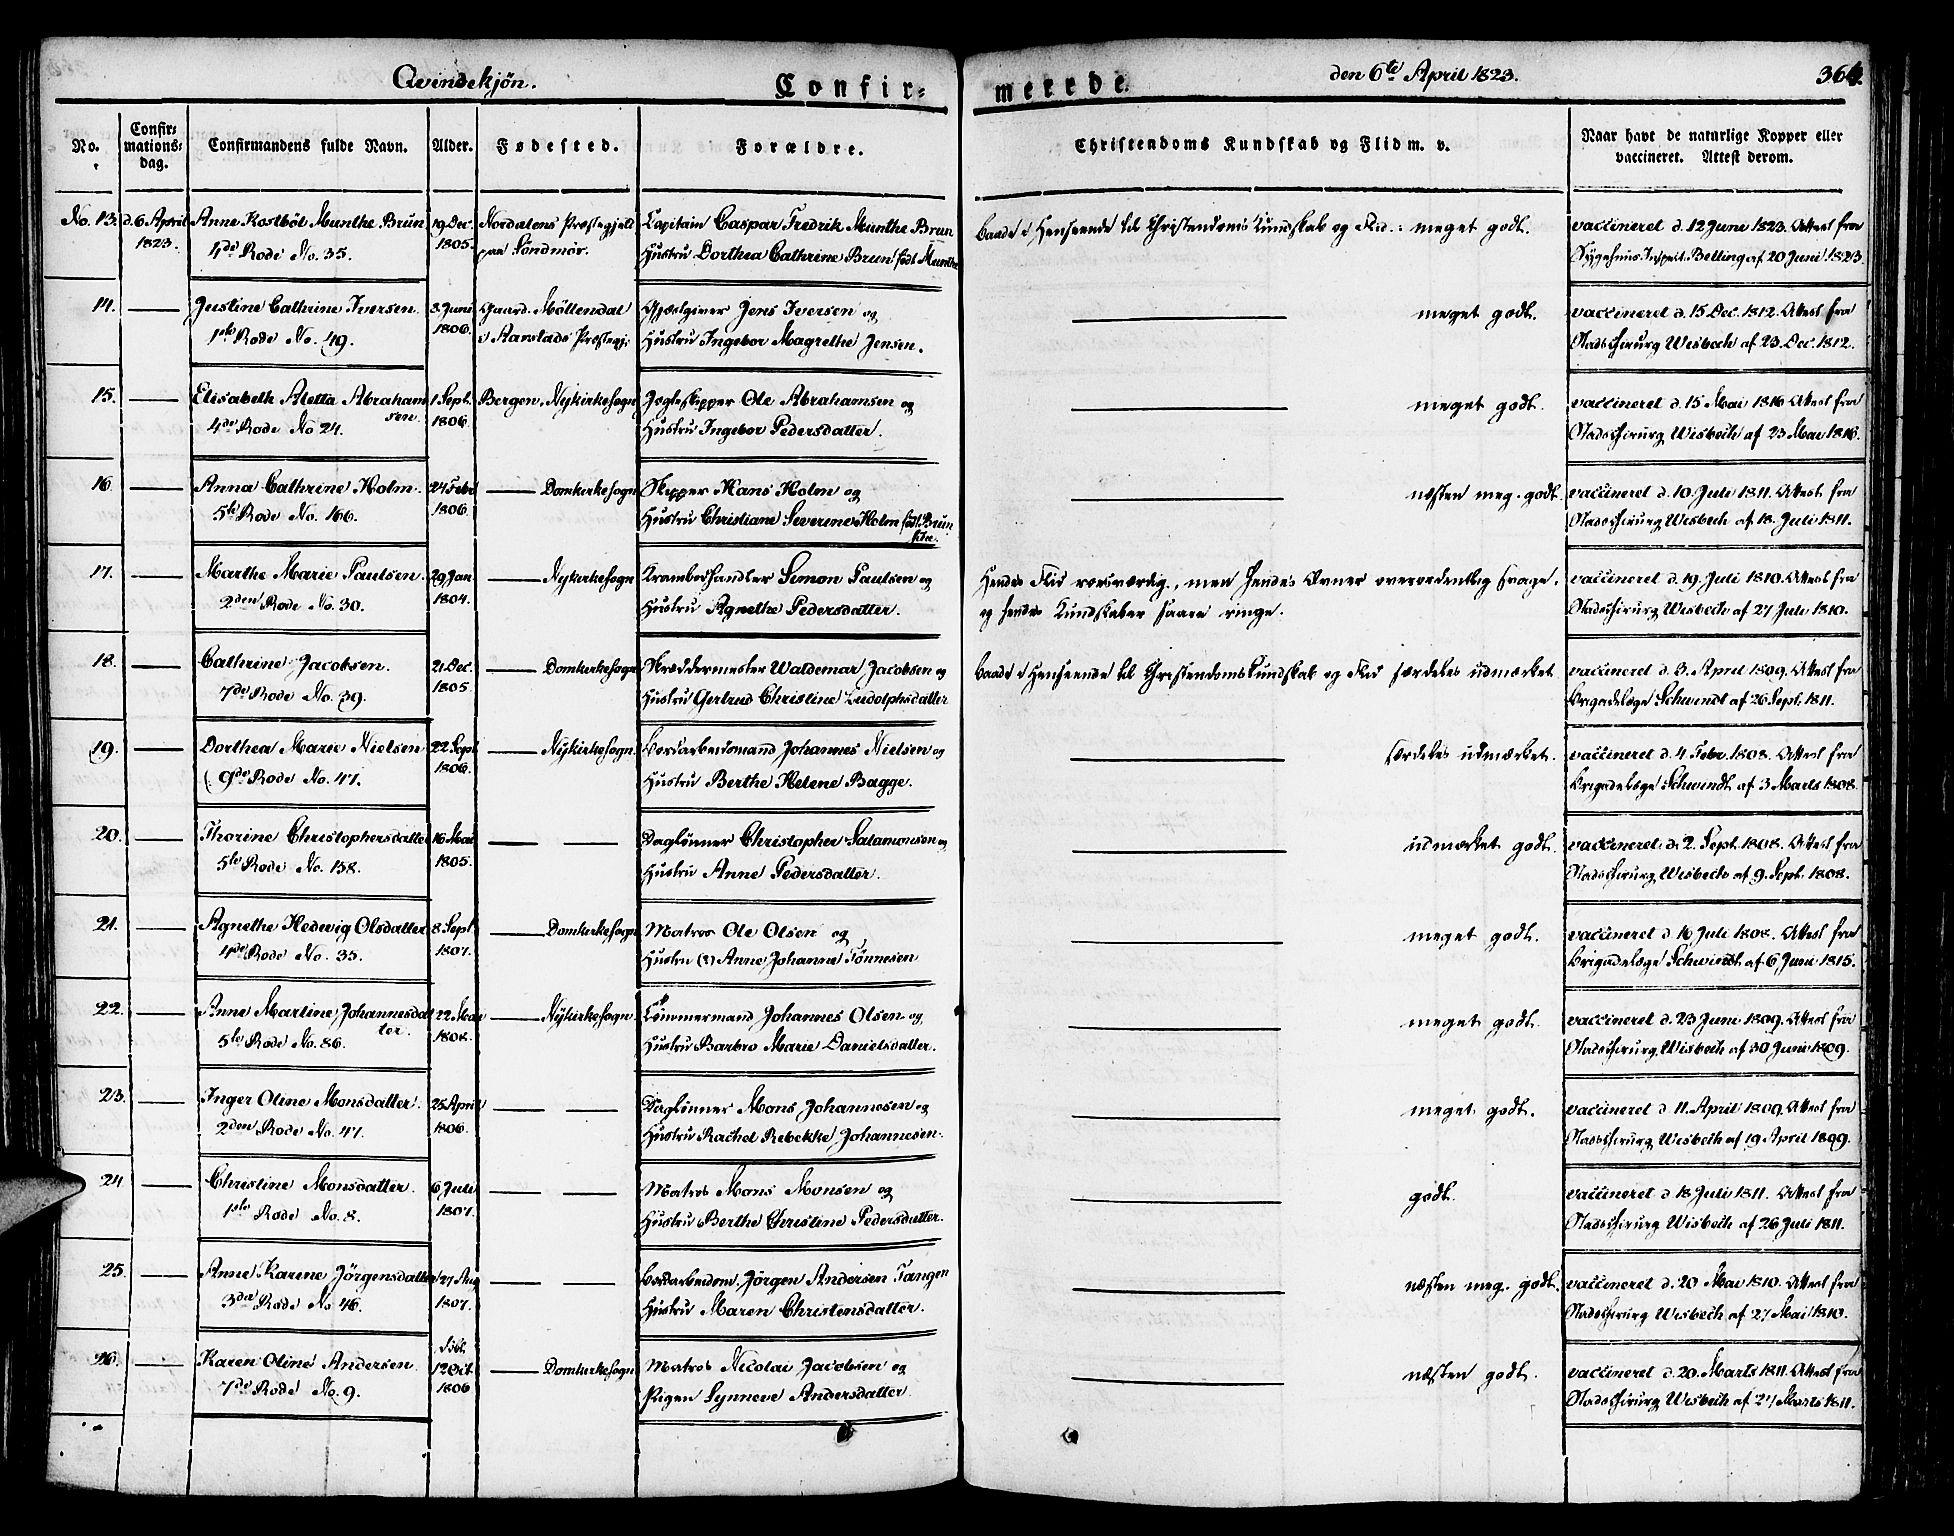 Qvindekjøn. Confir= merede. den 6te April 1823. 364.
No. Confir=mations=dag. Confirmandens fulde Navn. Alder. Fødested. Forældre. Christendoms Kundskab og Flid m. v. Naar havt de naturlige Kopper eller vaccineret. Attest derom.
No. 13. d. 6 April Anne Kostbøl Munthe Brun 19 Dec. Nordalens Præstegjeld Capitain Caspar Fredrik Munthe Brun baade i Henseende til Christendoms Kundskab og Flid: meget godt. vaccineret d. 12 June 1823. Attest fra
1823. 4de Rode No. 35. 1805. paa Söndmör. Hustru Dorthea Cathrine Brun födt Munthe Sygehuus Inspect. Belling af 20 Juni 1823.
14. Justine Cathrine Iversen. 3. Juni Gaard. Möllendal Gjæstgiver Jens Iversen og meget godt. vaccineret d. 15 Dec. 1812. Attest fra
1ste Rode No. 49. 1806. i Aarstads Præstegj: Hustru Ingebor Magrethe Jensen. Stadschirurg Wisbech af 23. Dec. 1812.
15. Elisabeth Aletta Abraham 1 Sept. Bergen, Nykirkesogn Jagteskipper Ole Abrahamsen og meget godt. vaccineret d 15 Mai 1816 Attest fra
sen. 4de Rode No 24. 1806. Hustru Ingebor Pedersdatter. Stadschirurg Wisbech af 23 Mai 1816.
16 Anna Cathrine Holm. 24 Febr Domkirkesogn Skipper Hans Holm og næsten meg. godt. vaccineret d. 10. Juli 1811. Attest fra
5te Rode No. 166. 1806. Hustru Christiane Severine Holm födt Brun Stadschirurg Wisbech af 18. Juli 1811.
17. Marthe Marie Paulsen. 29 Jan. Nykirkesogn Kramboehandler Simon Paulsen og Hendes Flid roesværdig, men hendes Evner overordentlig svage, vaccineret d. 19. Juli 1810. Attest fra
2den Rode No. 30. 1804. Hustru Agnethe Pedersdatter. og hendes Kundskaber saare ringe. Stadschirurg Wisbech af 27 Juli 1810.
18. Cathrine Jacobsen. 21 Dec. Domkirkesogn Skreddermester Waldemar Jacobsen og baade i Henseende til Christendomskundskab og Flid særdeles udmærket vaccineret d. 3. April 1809. Attest fra
7de Rode No. 39. 1805. Hustru Gertrud Christine Ludolphsdatter Brigadelæge Schwindt af 26 Sept. 1811.
19. Dorthea Marie Nielsen 22 Sept Nykirkesogn. Bordarbeidsmand Johannes Nielsen og særdeles udmærket. vaccineret d. 4 Febr. 1808. Attest fra
9de Rode No. 47. 1806. Hustru Berthe Helene Bagge. Brigadelæge Schwindt af 3 Marts 1808.
20. Thorine Christophersdatter 16 Mai Daglönner Christopher Salamonsen og udmærket godt. vaccineret d. 2. Sept. 1808. Attest fra
5te Rode No. 158. 1805. Hustru Anne Pedersdatter. Stadschirurg Wisbech af 9. Sept. 1808.
21. Agnethe Hedevig Olsdatter 8 Sept Domkirkesogn Matros Ole Olsen og meget godt. vaccineret d 16 Juli 1808. Attest fra
4de Rode No. 35. 1807. Hustru (?) Anne Johanne Tönnesen Brigadelæge Schwindt af 6 Juni 1815.
22. Anne Martine Johannesdat 22 Mai Nykirkesogn. Tömmermand Johannes Olsen og meget godt. vaccineret d. 23 Juni 1809. Attest fra
ter. 5te Rode No. 86. 1808. Hustru Barbro Marie Danielsdatter. Stadschirurg Wisbech af 30 Juni 1809.
23. Inger Oline Monsdatter. 25 April Daglönner Mons Johannesen og meget godt. vaccineret d 11. April 1809. Attest fra
2den Rode No. 47. 1806. Hustru Rachel Rebekke Johannesen. Stadschirurg Wisbech af 19 April 1899.
24 Christine Monsdatter. 6 Juli Matros Mons Monsen og godt. vaccineret d 18 Juli 1811. Attest fra
1ste Rode No. 8. 1807. Hustru Berthe Christine Pedersdatter. Stadschirurg Wisbech af 26 Juli 1811.
25. Anne Karene Jörgensdatter 27 Aug Bordarbeidsm. Jörgen Andersen Tangen næsten meg. godt. vaccineret d. 20 Mai 1810. Attest fra
3die Rode No 46. 1807. Hustru Maren Christensdatter. Stadschirurg Wisbech af 27 Mai 1810.
26. Karen Oline Andersen. döbt. 12 Oct. Domkirkesogn Matros Nicolai Jacobsen og næsten godt. vaccineret d. 20. Marts 1811. Attest fra
7de Rode No. 9. 1806 Pigen Synneve Andersdatter. Stadschirurg Wisbech af 27 Marts 1811.